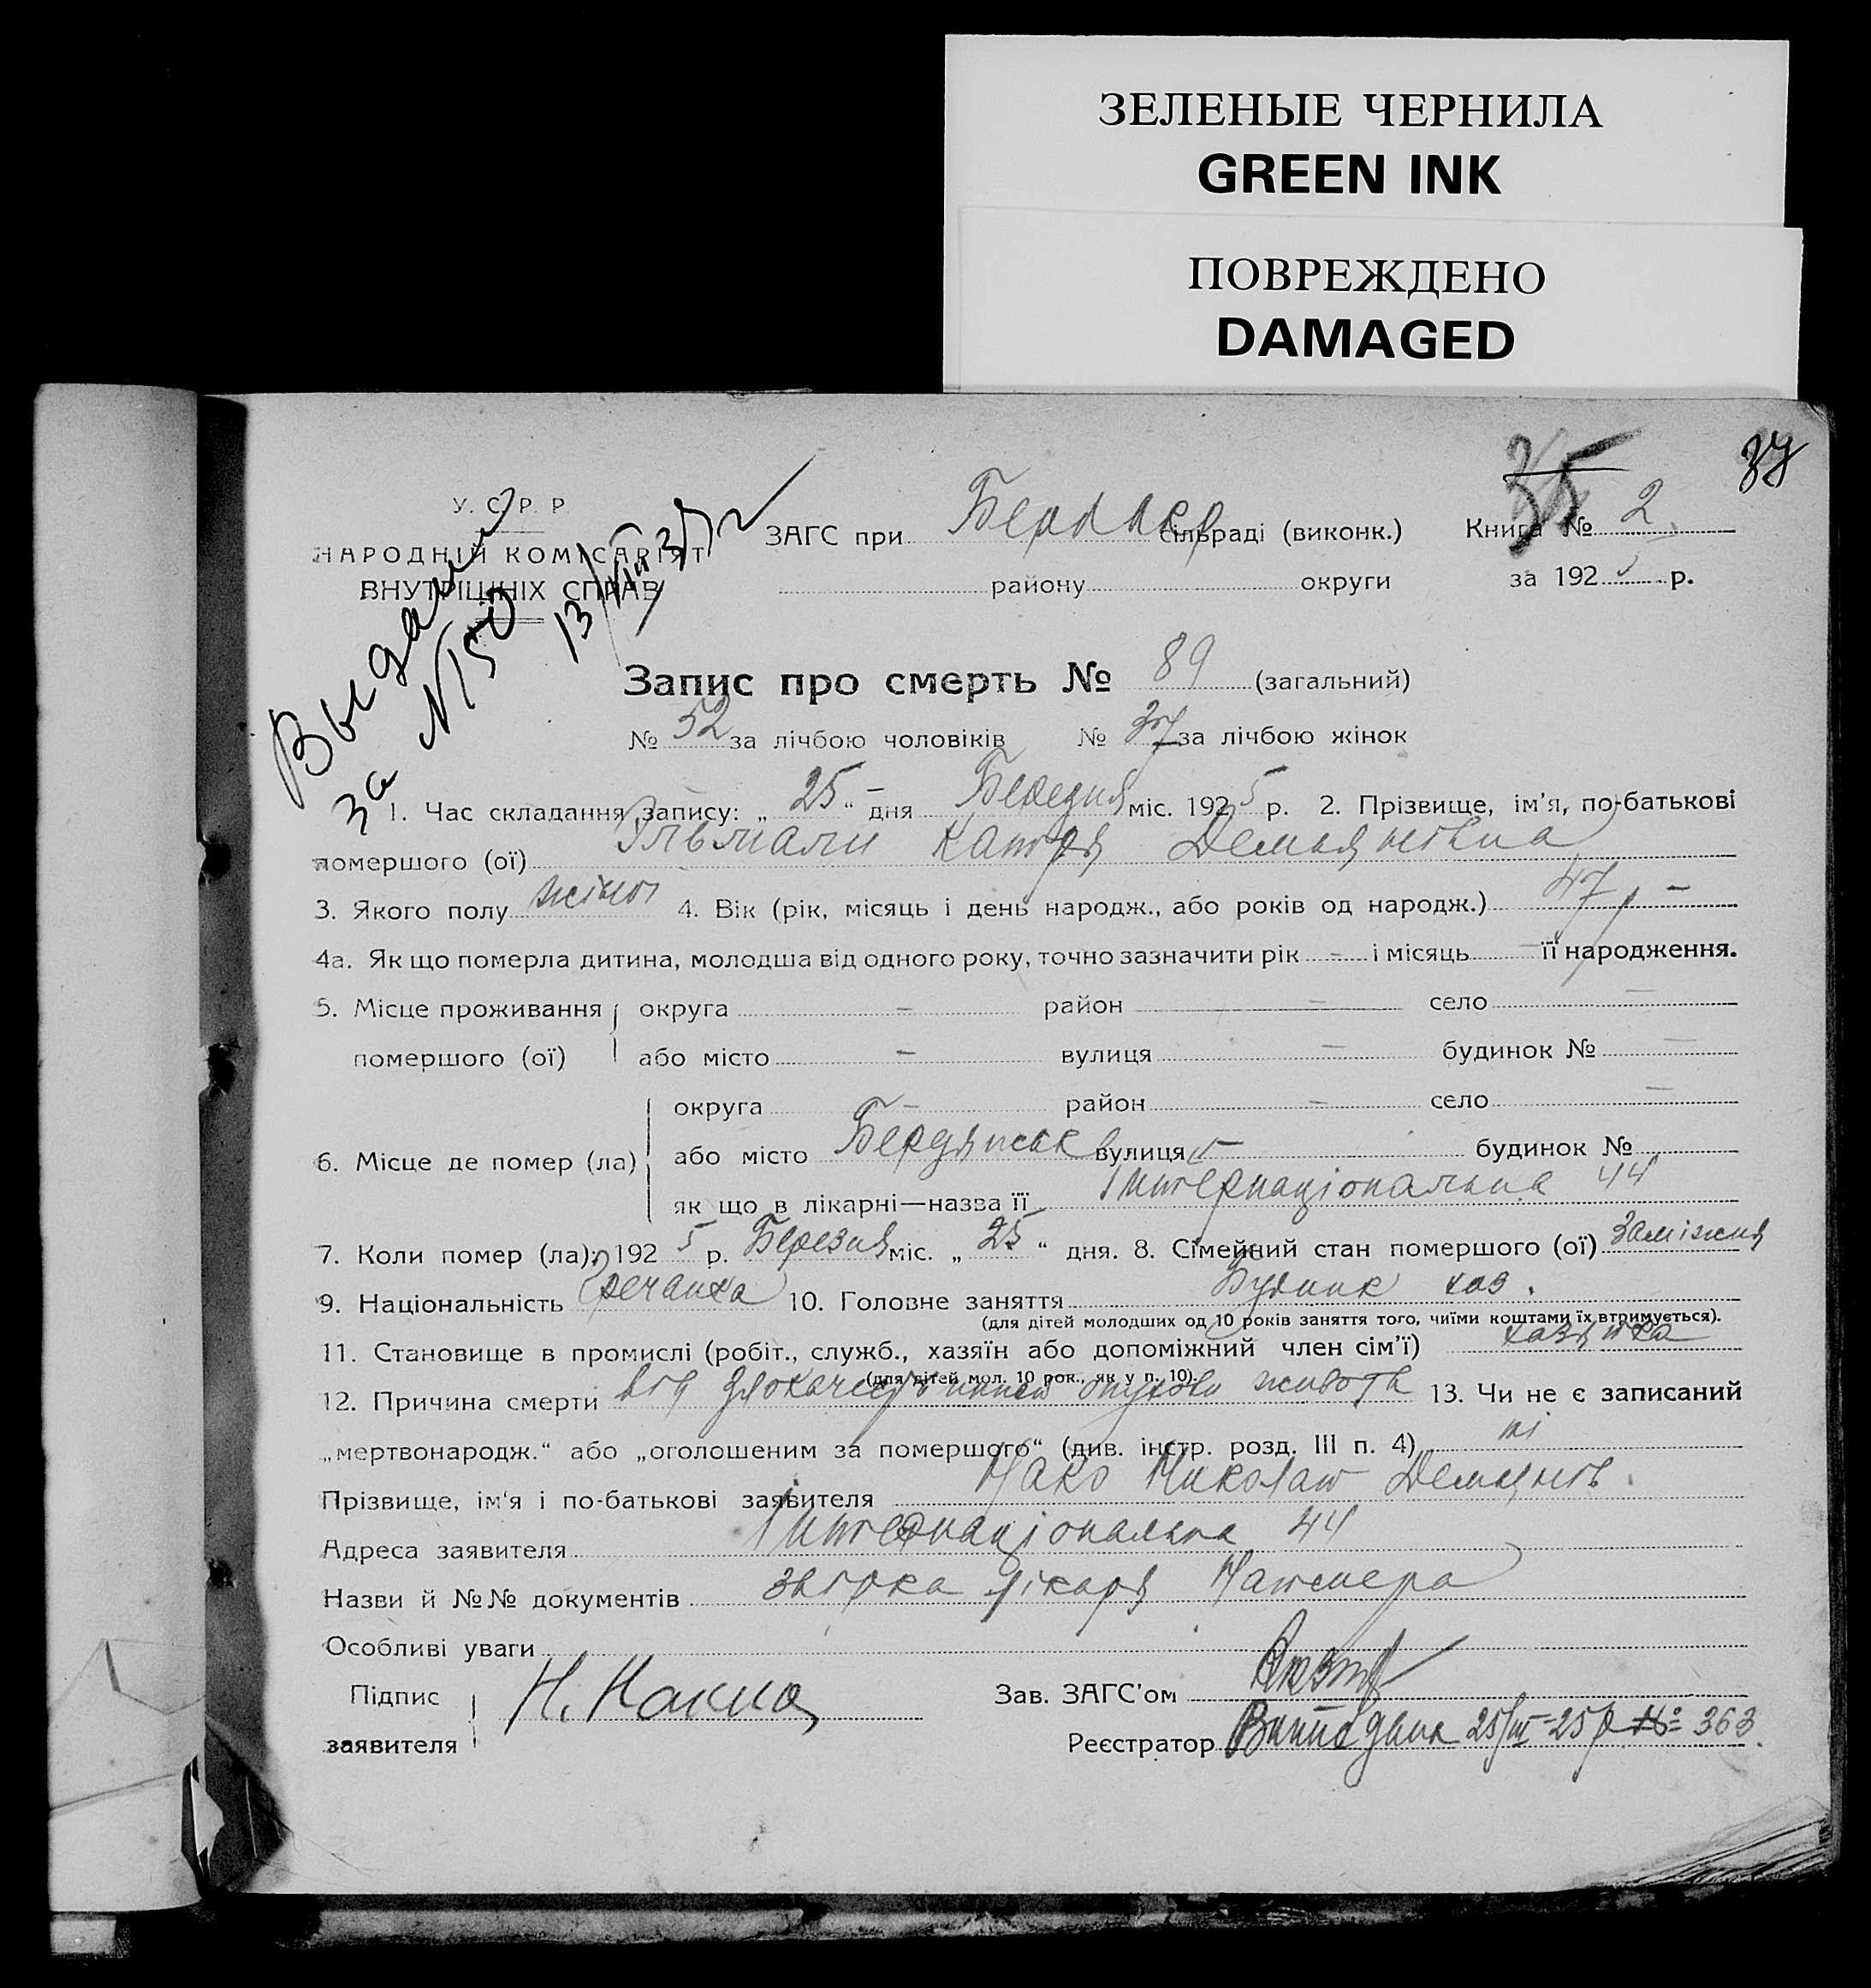 ЗЕЛЕНЫЕ ЧЕРНИЛА
GREEN INK
ПОВРЕЖДЕНО
DAMAGED
35 37
У. С. Р. Р.
НАРОДНІЙ КОМІСАРІЯТ
ВНУТРІШНІХ СПРАВ
Выдан
за N150
ЗАГС при сільраді (виконк.) Книга № 2
району округи за 192 5 р.
Запис про смерть № 89 (загальний)
№ 52 за лічбою чоловіків № 37 за лічбою жінок
1. Час складання запису: „ 25 “ дня Березня міс. 192 5 р. 2. Прізвище, ім’я, по-батькові
помершого (ої) Катря Демьянівна
3. Якого полу жіноч 4. Вік (рік, місяць і день народж., або років од народж.) 47 р –
4а. Як що померла дитина, молодша від одного року, точно зазначити рік – і місяць – її народження.
5. Місце проживання округа – район – село –
помершого (ої) або місто – вулиця – будинок № –
округа – район – село –
6. Місце де помер (ла) або місто Бердянськ вулиця будинок №
як що в лікарні—назва її Інтернаціональна 44
7. Коли помер (ла): 192 5 р. Березня міс. „ 25 “ дня. 8. Сімейний стан помершого (ої) Заміжня
9. Національність Гречанка 10. Головне заняття хаз.
(для дітей молодших од 10 років заняття того, чиїми коштами їх втримується).
11. Становище в промислі (робіт., служб., хазяїн або допоміжний член сім’ї) хазяйка
(для дітей мол. 10 рок., як у п. 10).
12. Причина смерти від опухоли живота 13. Чи не є записаний
„мертвонародж.“ або „оголошеним за помершого“ (див. інстр. розд. III п. 4) ні
Прізвище, ім‘я і по-батькові заявителя Демянів.
Адреса заявителя Інтернаціональна 44
Назви й №№ документів лікаря
Особливі уваги
Підпис Зав. ЗАГС’ом
заявителя Реєстратор 25/III-25 р № 363